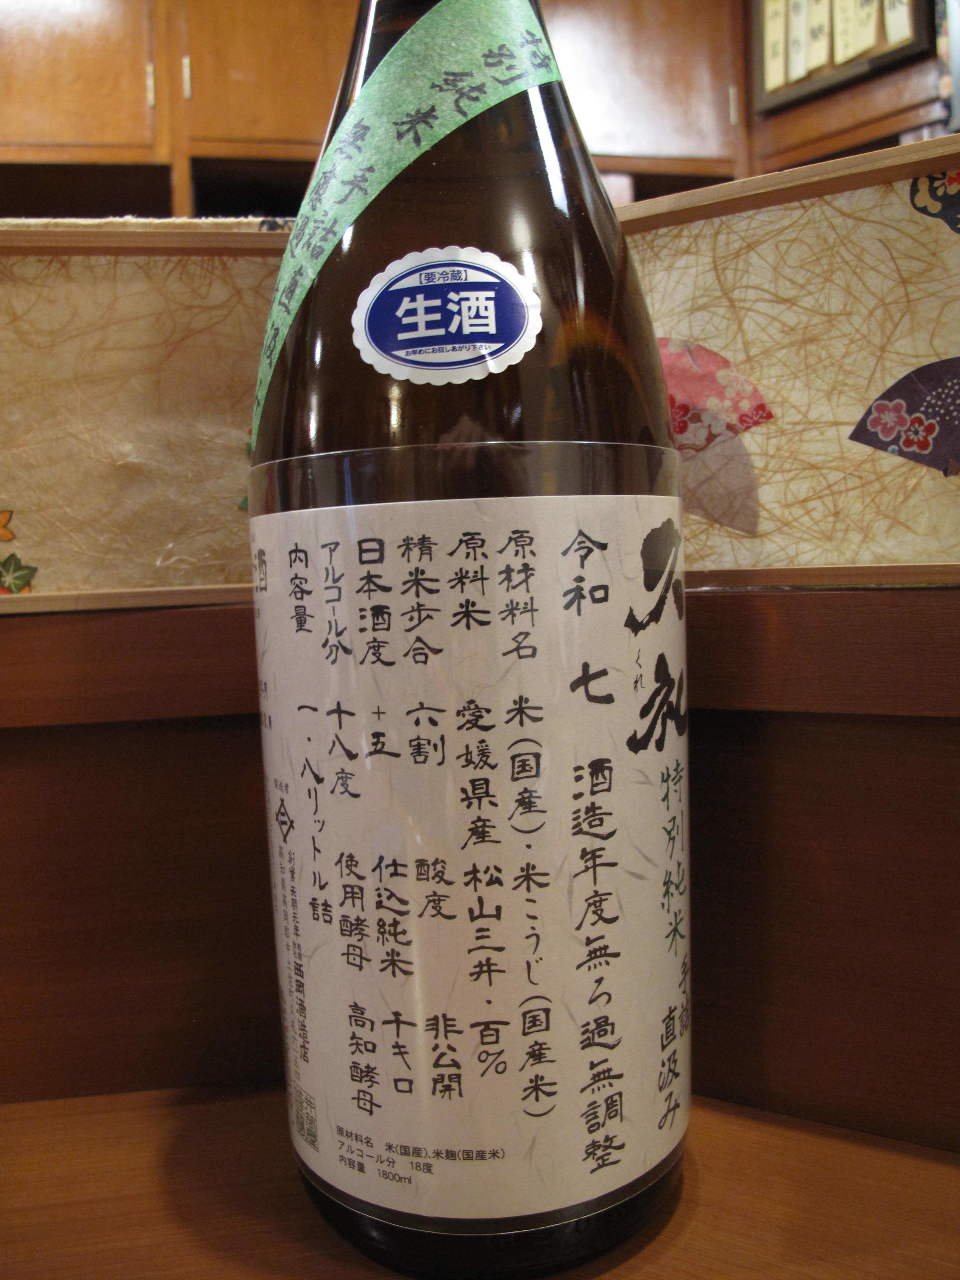 特別純米
手詰直汲み
【要冷蔵】
生酒
お早めにお召しあがり下さい
久礼
くれ
特別純米 手詰 直汲み
令和 七 酒造年度無ろ過無調整
原材料名 米(国産)・米こうじ(国産米)
原料米 愛媛県産 松山三井・百%
精米歩合 六割 酸度 非公開
日本酒度 +五 仕込純米 千キロ
アルコール分 十八度 使用酵母 高知酵母
内容量 一・八リットル詰
西岡酒造店
酒
原材料名 米(国産)、米麹(国産米)
アルコール分 18度
内容量 1800ml